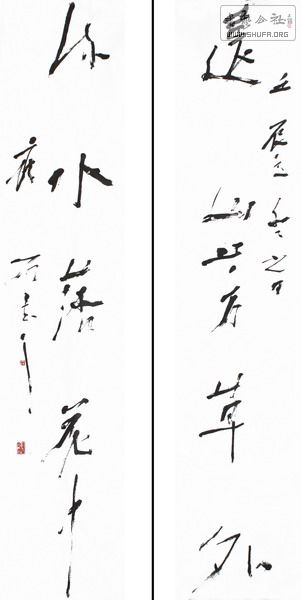 遠山芳草外
壬辰立冬之日
流水落花中
公社
WWW.SHUFA.ORG